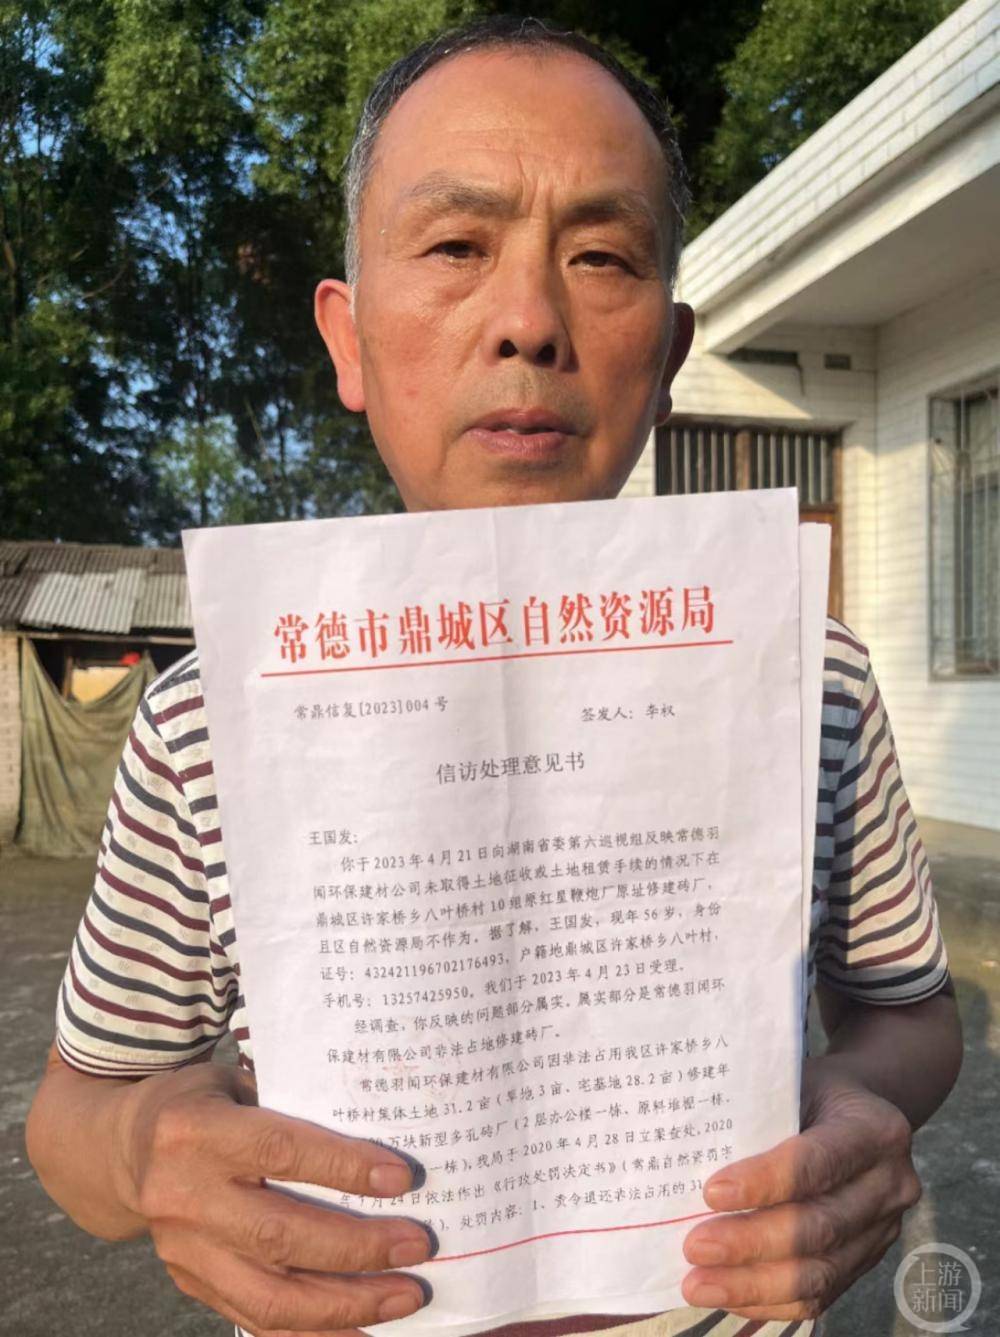 常德市鼎城区自然资源局
常鼎信复[2023]004 号
签发人：李权
信访处理意见书
王国发：
你于 2023 年 4 月 21 日向湖南省委第六巡视组反映常德羽
闻环保建材公司未取得土地征收或土地租赁手续的情况下在
鼎城区许家桥乡八叶桥村 10 组原红星鞭炮厂原址修建砖厂，
且区自然资源局不作为。据了解，王国发，现年 56 岁，身份
证号：432421196702176493，户籍地鼎城区许家桥乡八叶村，
手机号：13257425950。我们于 2023 年 4 月 23 日受理。
经调查，你反映的问题部分属实。属实部分是常德羽闻环
保建材有限公司非法占地修建砖厂。
常德羽闻环保建材有限公司因非法占用我区许家桥乡八
叶桥村集体土地 31.2 亩（旱地 3 亩、宅基地 28.2 亩）修建年
万块新型多孔砖厂（2 层办公楼一栋、原料堆棚一栋、
一栋），我局于 2020 年 4 月 28 日立案查处，2020
24 日依法作出《行政处罚决定书》（常鼎自然资罚字
），处罚内容：1、责令退还非法占用的 31.
上游
新闻